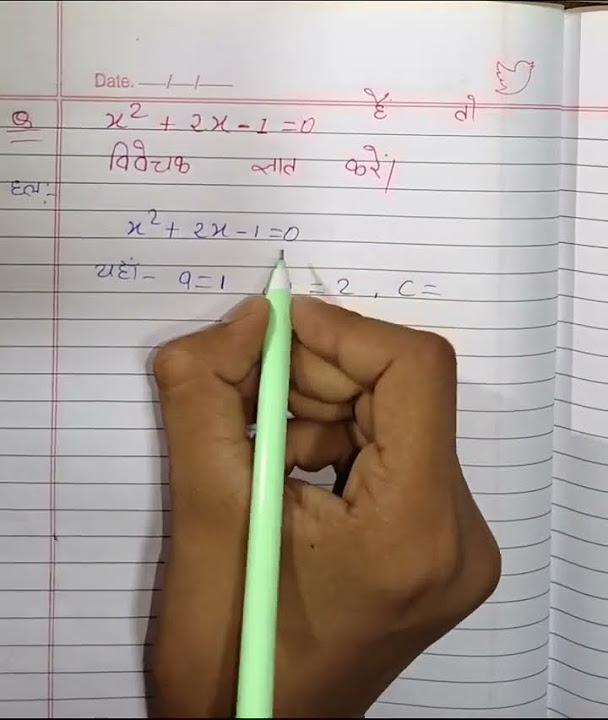 Date. __/__/__
Q x² + 2x - 1 = 0 है तो
विवेचक ज्ञात करें।
हल:-
x² + 2x - 1 = 0
यहाँ- a = 1 = 2, c =